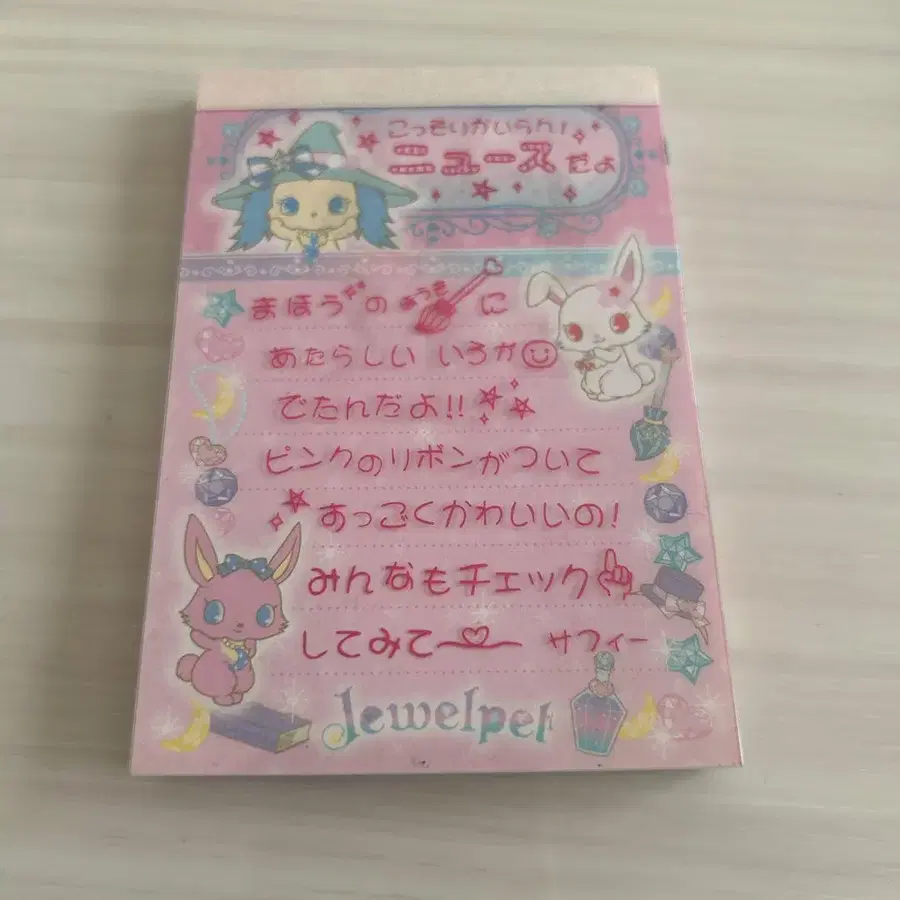 こっそりかいらん!
ニュースだよ
まほうの ほうきに
あたらしい いろが
でたんだよ!!
ピンクのリボンがついて
すっごくかわいいの!
みんなもチェック
してみて サフィー
Jewelpet